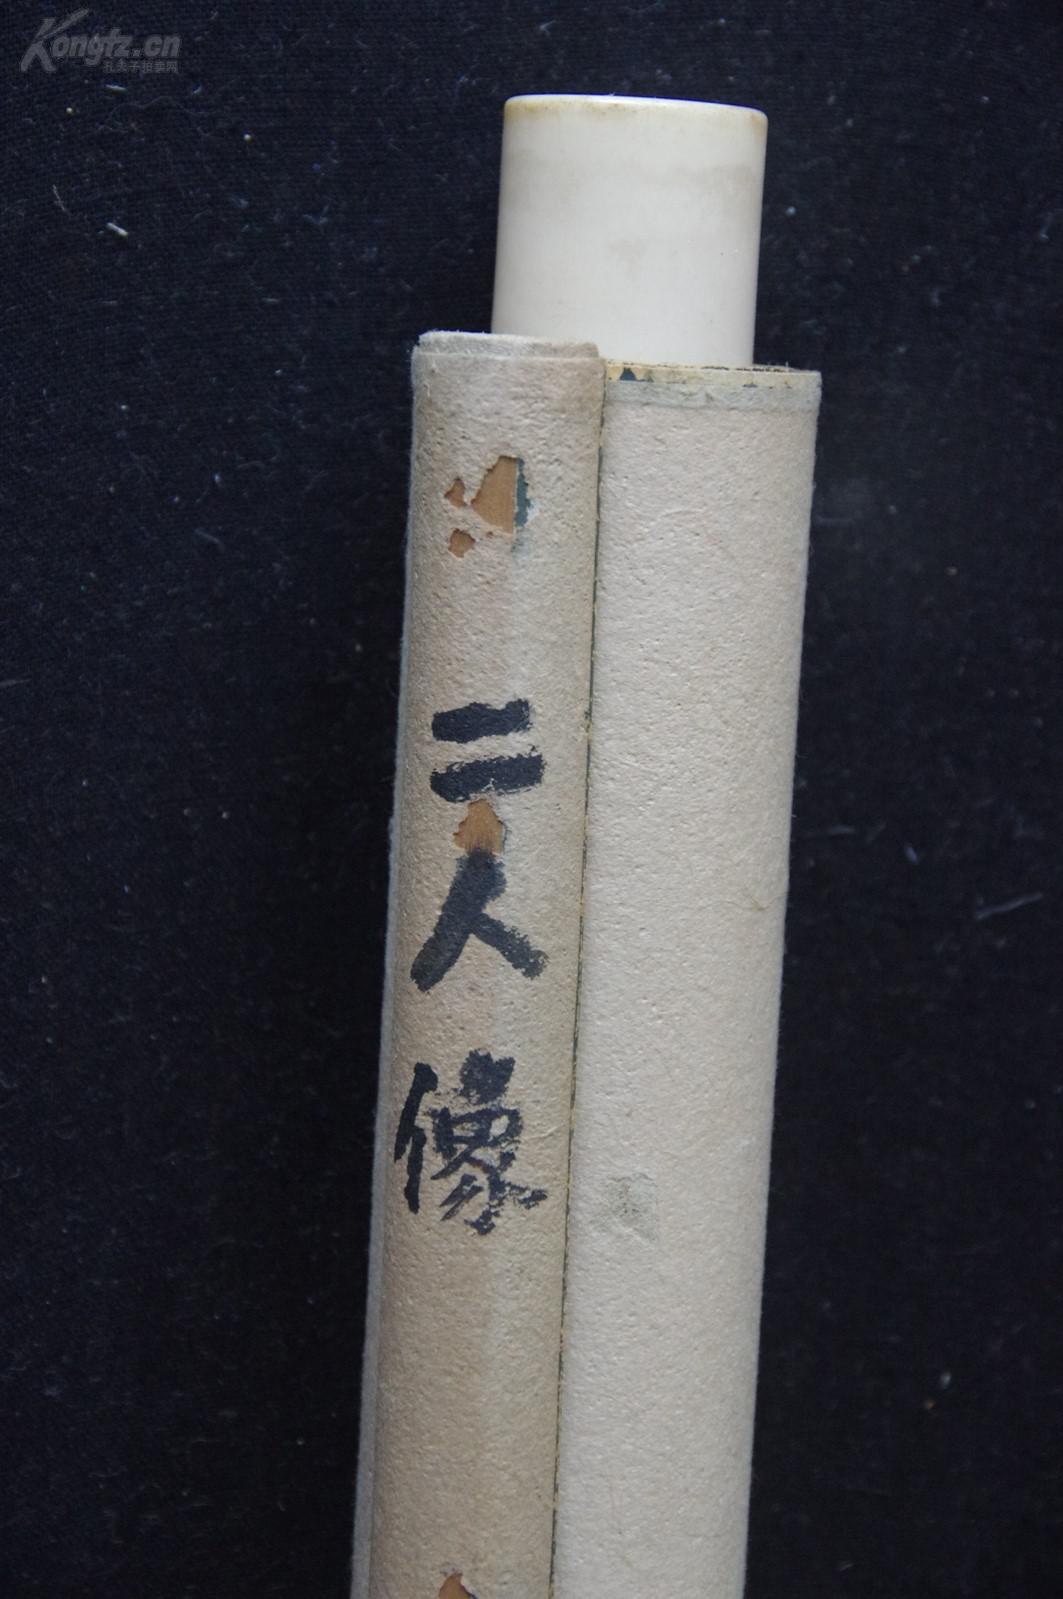 Kongfz.cn
孔夫子拍卖网
二人像